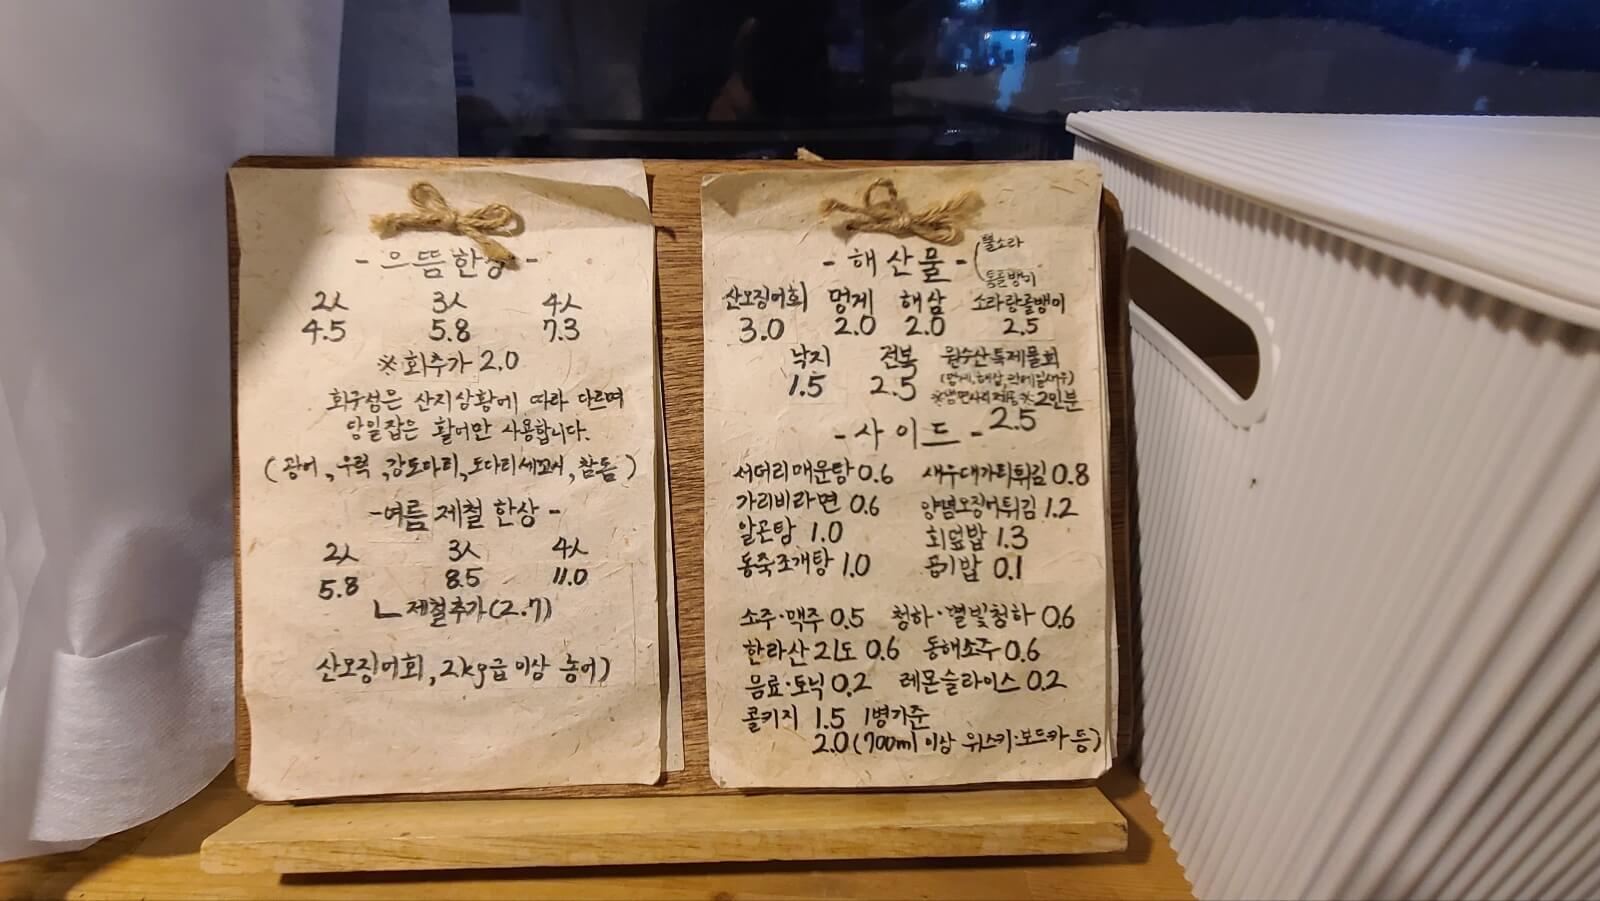 - 으뜸한상 -
2人 3人 4人
4.5 5.8 7.3
※ 회추가 2.0
회구성은 산지상황에 따라 다르며
당일잡은 활어만 사용합니다.
(광어, 우럭, 강도다리, 도다리세꼬시, 참돔)
- 여름 제철 한상 -
2人 3人 4人
5.8 8.5 11.0
ㄴ 제철추가(2.7)
산오징어회, 2kg급 이상 농어)
- 해산물 -
뿔소라
통골뱅이
산오징어회 멍게 해삼 소라랑골뱅이
3.0 2.0 2.0 2.5
낙지 전복 원수산특제물회
1.5 2.5
※냉면사리제공※ 2인분
2.5
- 사이드 -
서더리매운탕 0.6 새우대가리튀김 0.8
가리비라면 0.6 양념오징어튀김 1.2
알곤탕 1.0 회덮밥 1.3
동죽조개탕 1.0 공기밥 0.1
소주·맥주 0.5 청하·별빛청하 0.6
한라산 21도 0.6 동해소주 0.6
음료·토닉 0.2 레몬슬라이스 0.2
콜키지 1.5 1병기준
2.0 (700ml 이상 위스키·보드카 등)